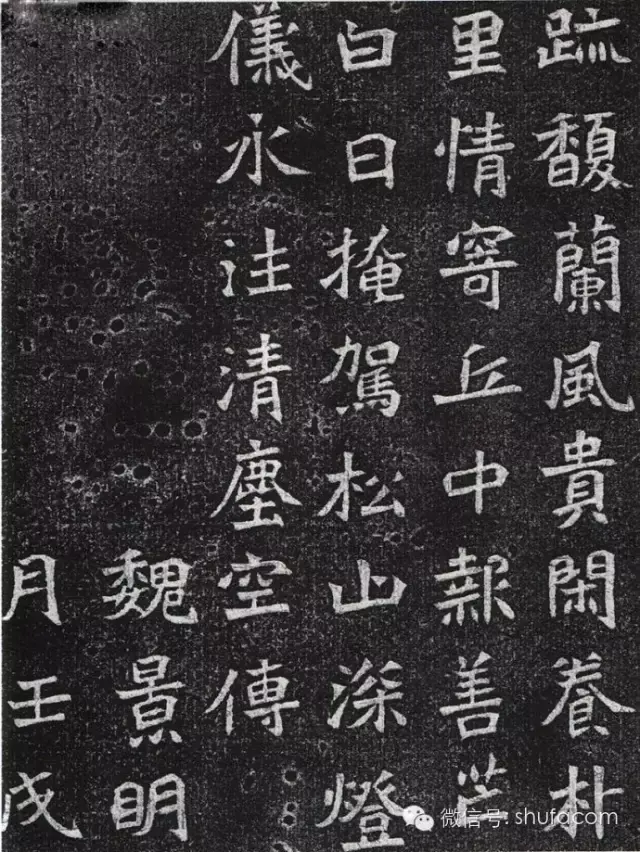 䟽馥蘭風貴閑養朴
里情寄丘中報善芒
白日掩駕松山深燈
儀永往清塵空傳
魏景明
月壬戌
微信号: shufacom